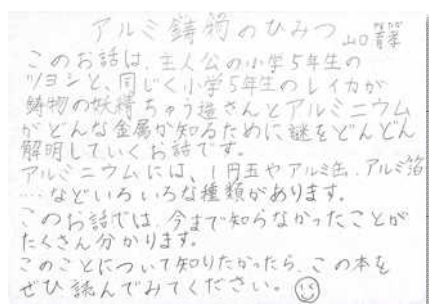 アルミ鋳物のひみつ 山口
このお話は、主人公の小学5年生の
ツヨシと、同じく小学5年生のレイカが
鋳物の妖精ちゅう造さんとアルミニウム
がどんな金属か知るために謎をどんどん
解明していくお話です。
アルミニウムには、1円玉やアルミ缶、アルミ箔
…などいろいろな種類があります。
このお話では、今まで知らなかったことが
たくさん分かります。
このことについて知りたかったら、この本を
ぜひ読んでみてください。